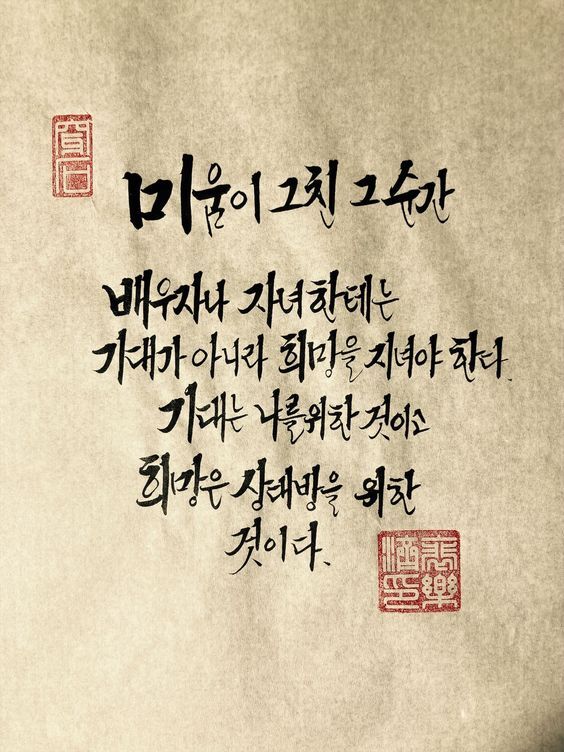 미움이 그친 그 순간
배우자나 자녀한테는
기대가 아니라 희망을 지녀야 한다.
기대는 나를위한 것이고
희망은 상대방을 위한
것이다.